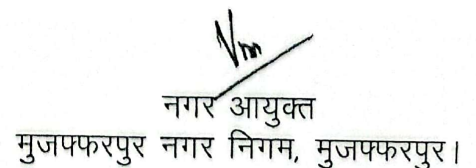 नगर आयुक्त
मुजफ्फरपुर नगर निगम, मुजफ्फरपुर।